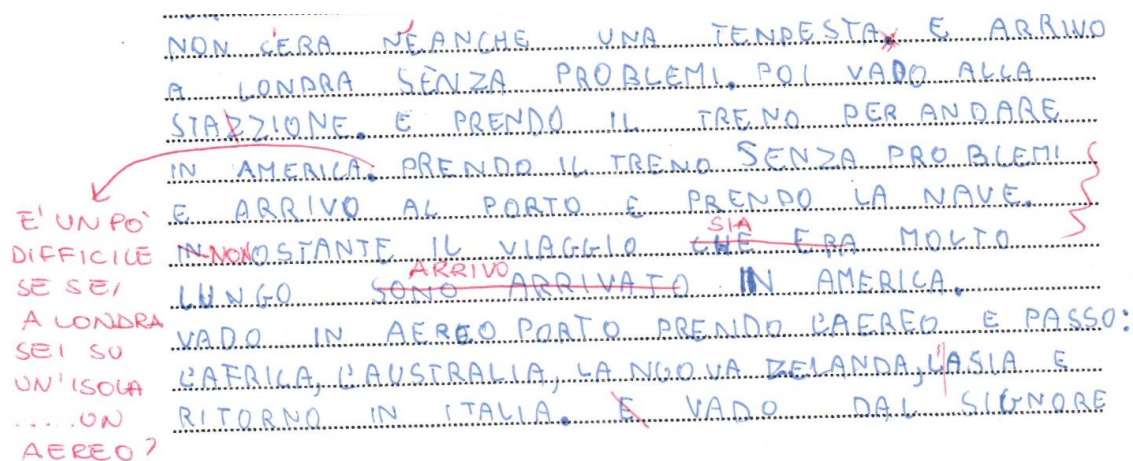 NON C'ERA NEANCHE UNA TENPESTA. E ARRIVO
A LONDRA SENZA PROBLEMI. POI VADO ALLA
STAZZIONE. E PRENDO IL TRENO PER ANDARE
IN AMERICA. PRENDO IL TRENO SENZA PROBLEMI
E ARRIVO AL PORTO E PRENDO LA NAVE.
SIA
IN NONOSTANTE IL VIAGGIO CHE ERA MOLTO
ARRIVO
LUNGO SONO ARRIVATO IN AMERICA.
VADO IN AEREO PORTO PRENDO L'AEREO E PASSO:
L'AFRICA, L'AUSTRALIA, LA NUOVA ZELANDA, L'ASIA E
RITORNO IN ITALIA. E VADO DAL SIGNORE
E' UN PO'
DIFFICILE
SE SEI
A LONDRA
SEI SU
UN'ISOLA
.....UN
AEREO?